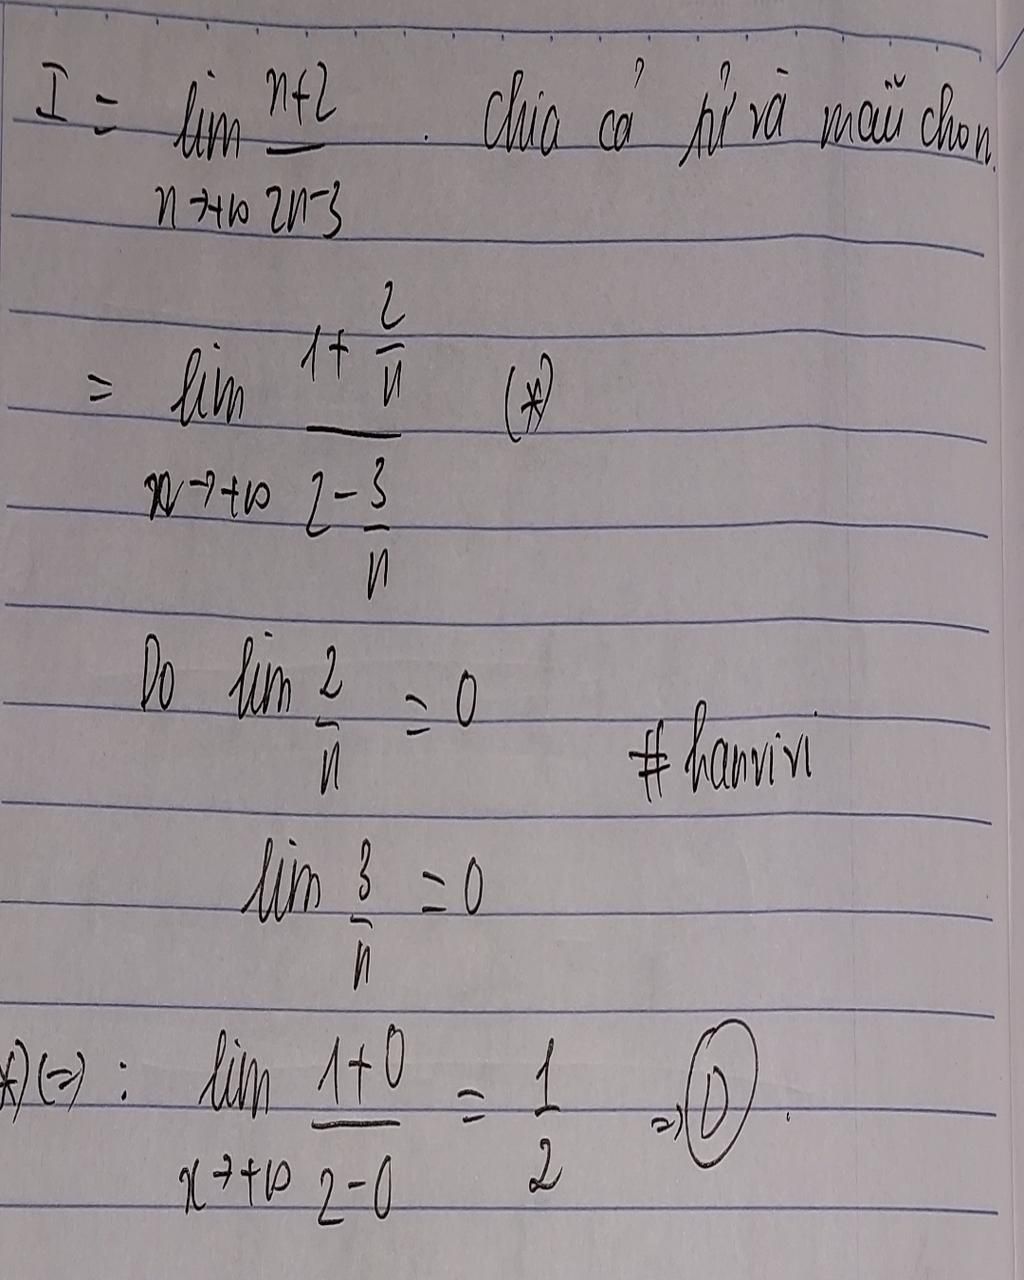 I = lim n+2 / 2n-3 . chia cả tử và mẫu cho n.
n→+∞
= lim 1+ 2/n / 2- 3/n (*)
x→+∞
Do lim 2/n = 0
# hanvivi
lim 3/n = 0
*) (=) : lim 1+0 / 2-0 = 1/2 => D .
x→+∞